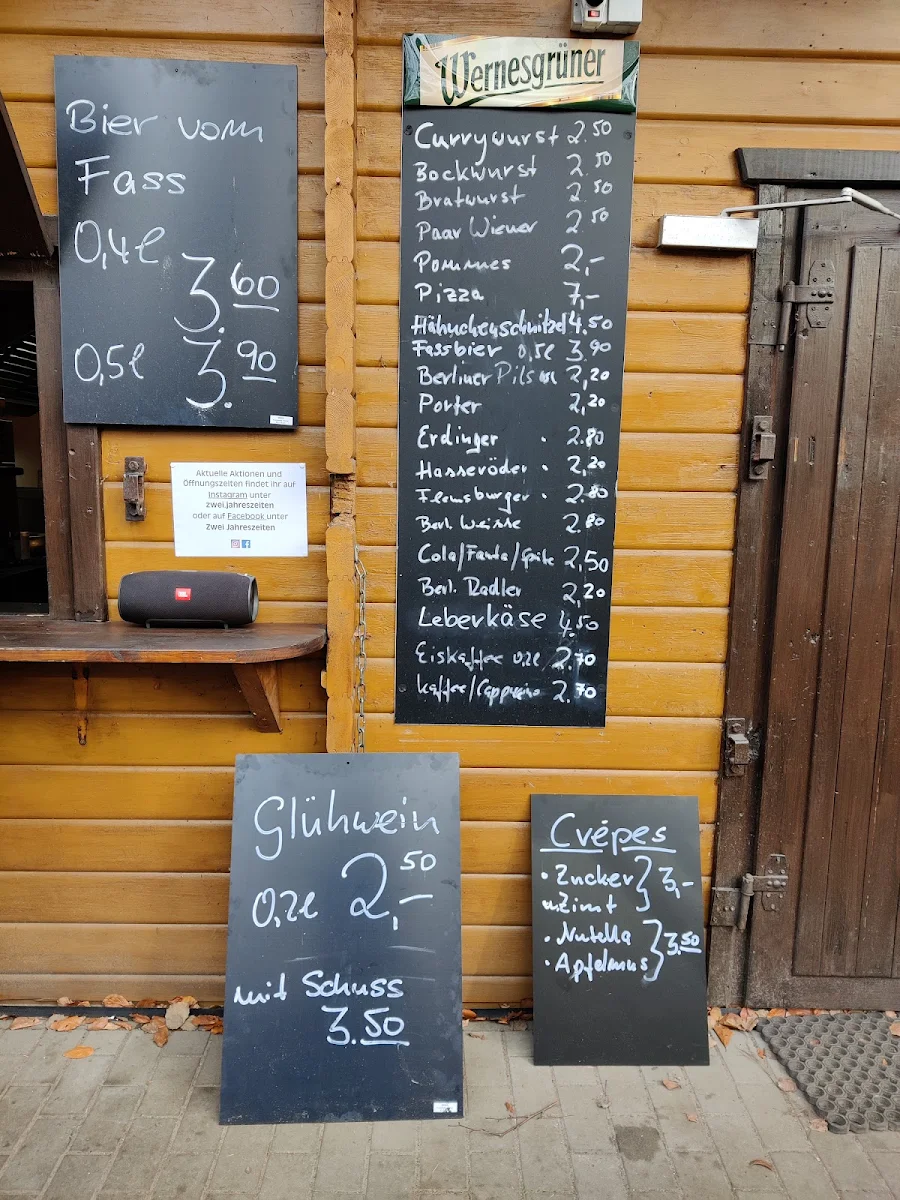 Bier vom
Fass
0,4l
3.60
0,5l
3.90
Aktuelle Aktionen und
Öffnungszeiten findet ihr auf
Instagram unter
zwei.jahreszeiten
oder auf Facebook unter
Zwei Jahreszeiten
JBL
Wernesgrüner
Currywurst 2.50
Bockwurst 2.50
Bratwurst 2.50
Paar Wiener 2.50
Pommes 2,-
Pizza 7,-
Hähnchenschnitzel 4.50
Fassbier 0,5l 3.90
Berliner Pilsner 2,20
Porter 2,20
Erdinger 2.80
Hasseröder 2,20
Flensburger 2.80
Berl. Weisse 2.80
Cola/Fanta/Sprite 2,50
Berl. Radler 2,20
Leberkäse 4.50
Eiskaffee 0,2l 2.70
Kaffee/Cappuccino 2.70
Glühwein
0,2l 2,50-
mit Schuss
3.50
Crêpes
· Zucker
u. Zimt } 3,-
· Nutella
· Apfelmus } 3.50